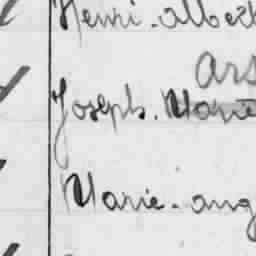 Henri-albert
Ars
Joseph. Marie
Marie-ang